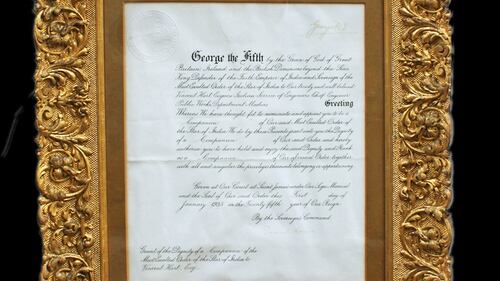 George the Fifth by the Grace of God of Great
Britain, Ireland and the British Dominions beyond the Seas
King Defender of the Faith Emperor of India and Sovereign of the
Most Exalted Order of the Star of India to Our trusty and well beloved
Vincent Hart Esquire Indian Service of Engineers Chief Engineer
Public Works Department Madras Greeting
Whereas We have thought fit to nominate and appoint you to be a
Companion of Our said Most Exalted Order of
the Star of India We do by these Presents grant unto you the Dignity
of a Companion of Our said Order and hereby
authorise you to have hold and enjoy the said Dignity and Rank
as a Companion of Our aforesaid Order together
with all and singular the privileges thereunto belonging or appertaining
Given at Our Court at Saint James's under Our Sign Manual
and the Seal of Our said Order this First day of
January 1935 in the Twenty fifth year of Our Reign
By the Sovereign's Command
Grant of the Dignity of a Companion of the
Most Exalted Order of the Star of India to
Vincent Hart, Esq.